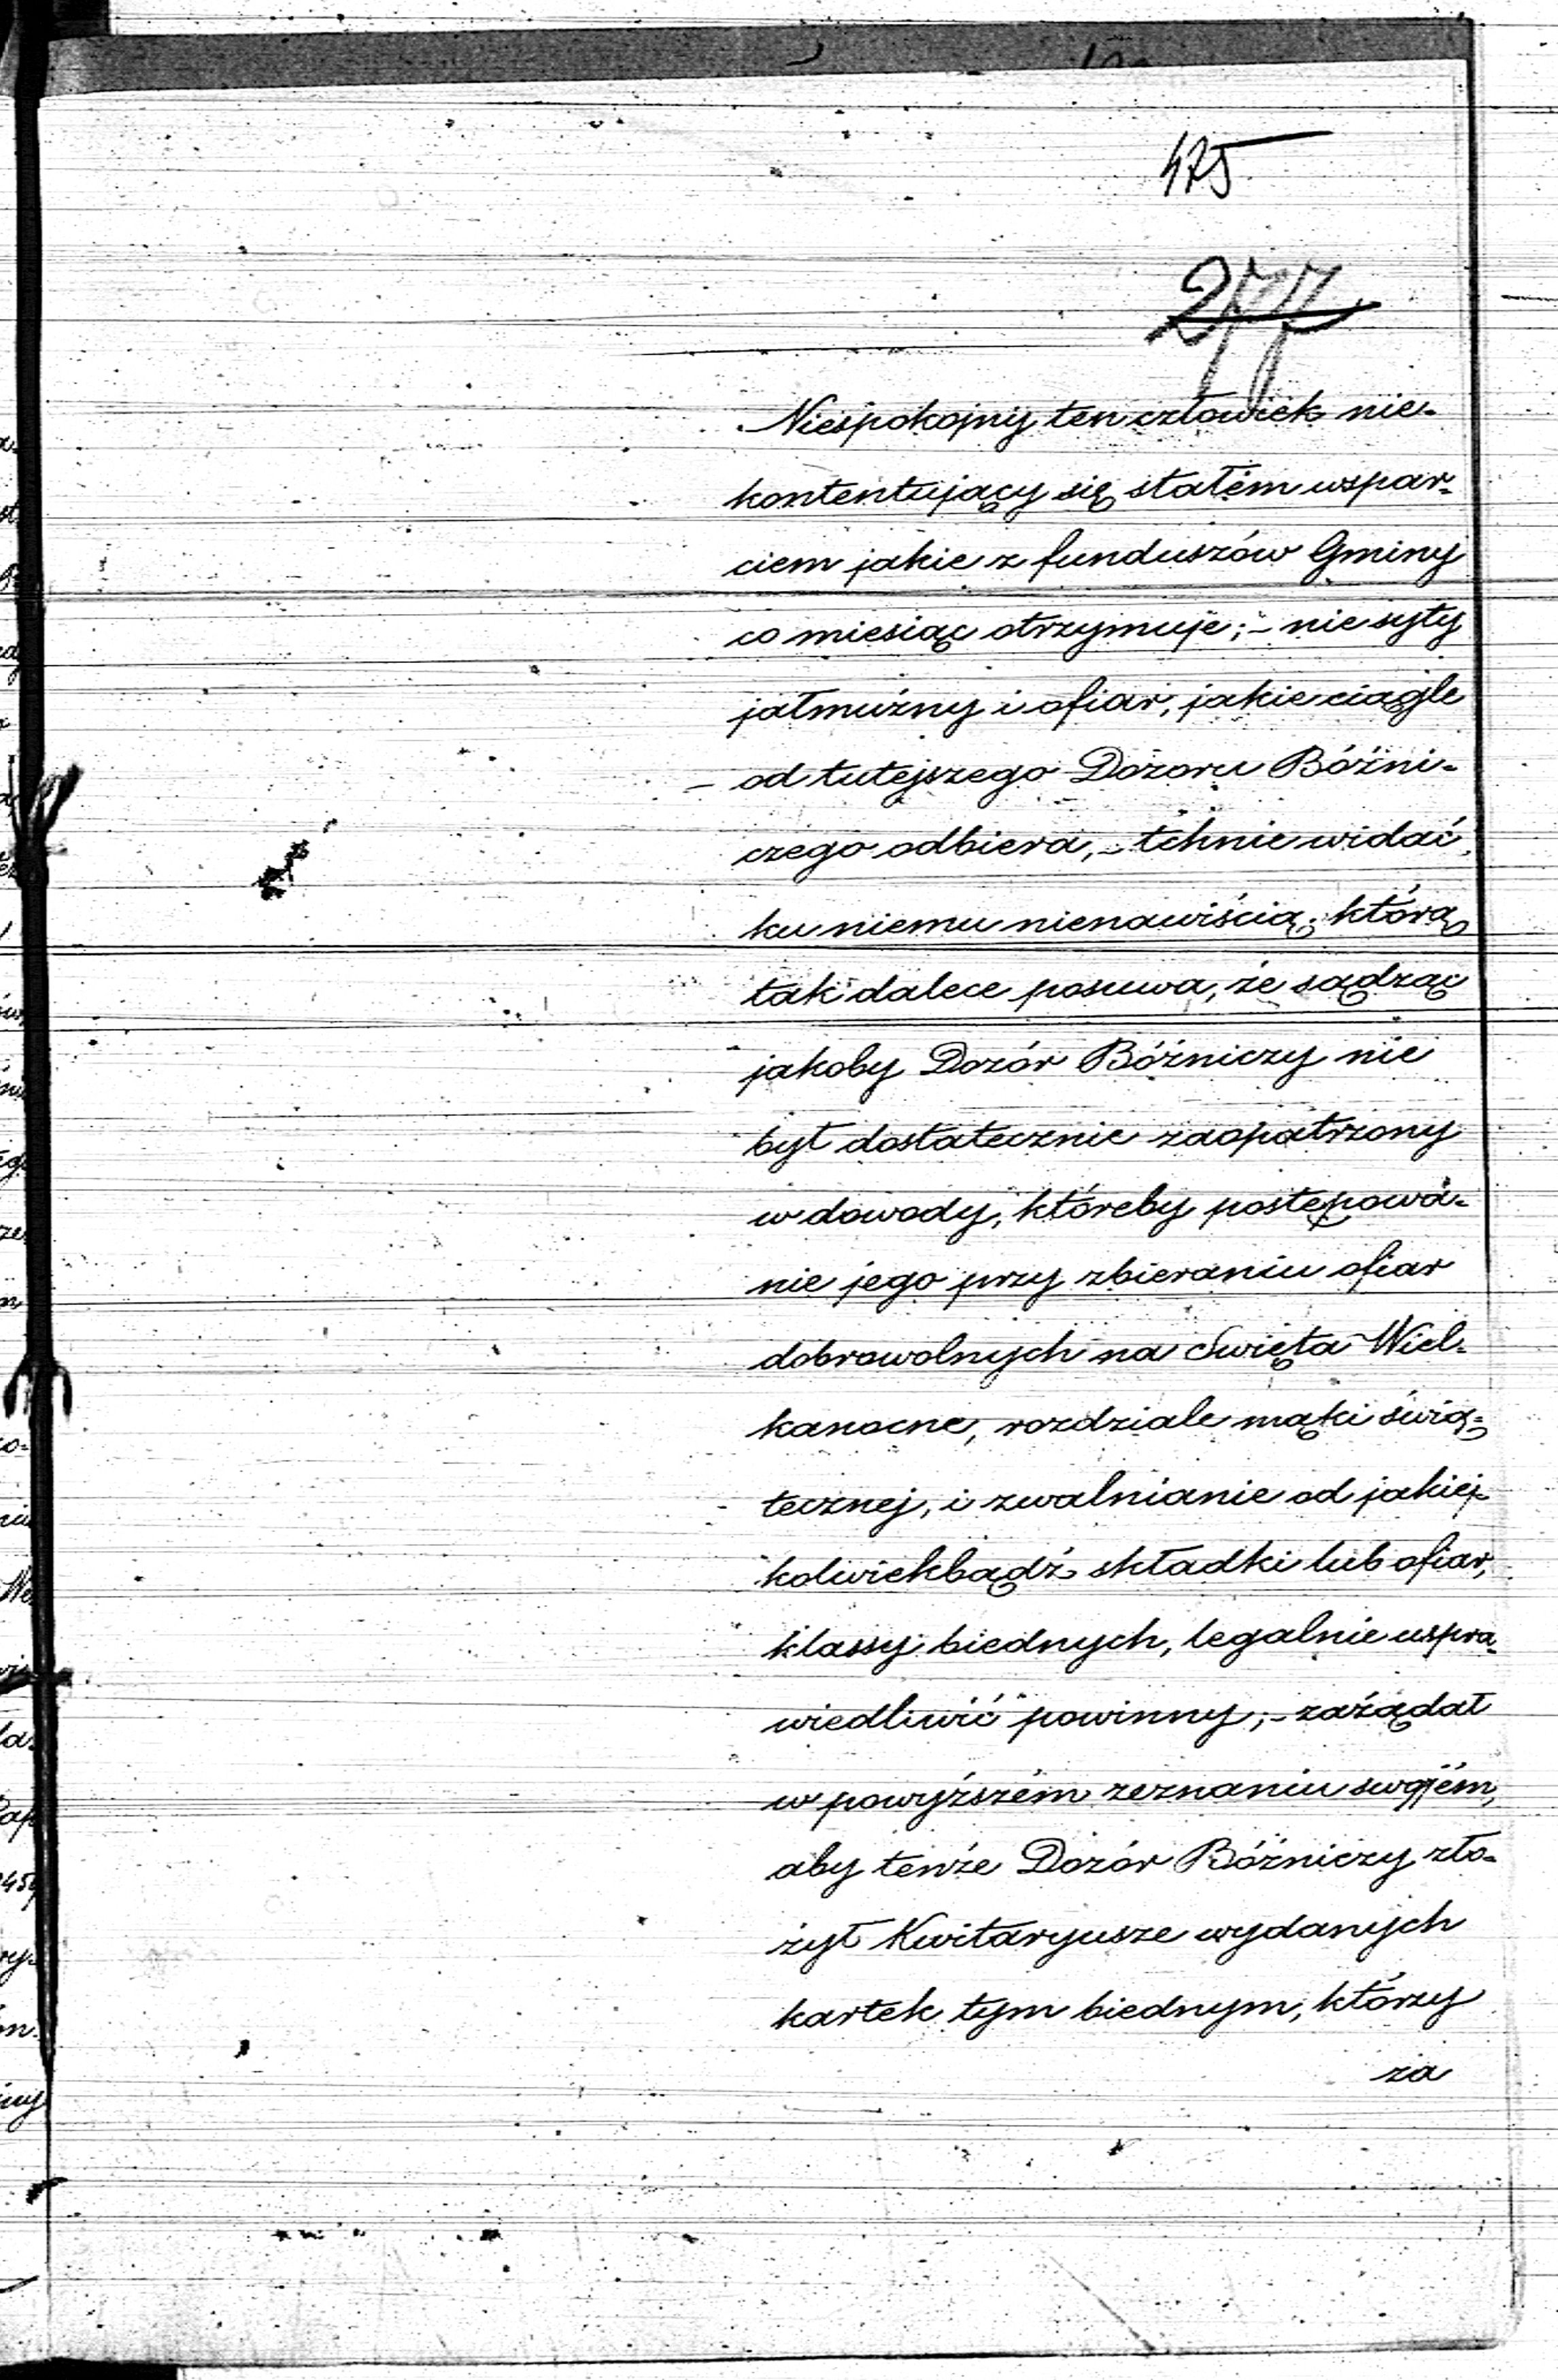 475
277
Niespokojny ten człowiek nie-
kontentujący się stałém wspar-
ciem jakie z funduszów Gminy
co miesiąc otrzymuje; – nie syty
jałmużny i ofiar, jakie ciągle
od tutejszego Dozoru Bóźni-
czego odbiera, – tchnie widać
ku niemu nienawiścią, którą
tak dalece posuwa, że sądząc
jakoby Dozór Bóżniczy nie
był dostatecznie zaopatrzony
w dowody, któreby postępowa-
nie jego przy zbieraniu ofiar
dobrowolnych na Swięta Wiel-
kanocne, rozdziale mąki świą-
tecznej, i zwalnianie od jakiej-
kolwiekbądź składki lub ofiar,
klassy biednych, legalnie uspra-
wiedliwić powinny; – zażądał
w powyższém zeznaniu swojém,
aby tenże Dozór Bóźniczy zło-
żył Kwitaryusze wydanych
kartek tym biednym, którzy
za